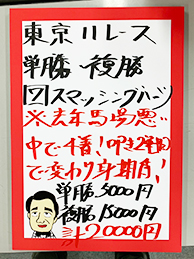 東京11レース
単勝・複勝
17スマッシングハーツ
※去年馬場悪い
中で4着!叩き2番目
で変わり身期待!
単勝5000円
複勝15000円
計20000円